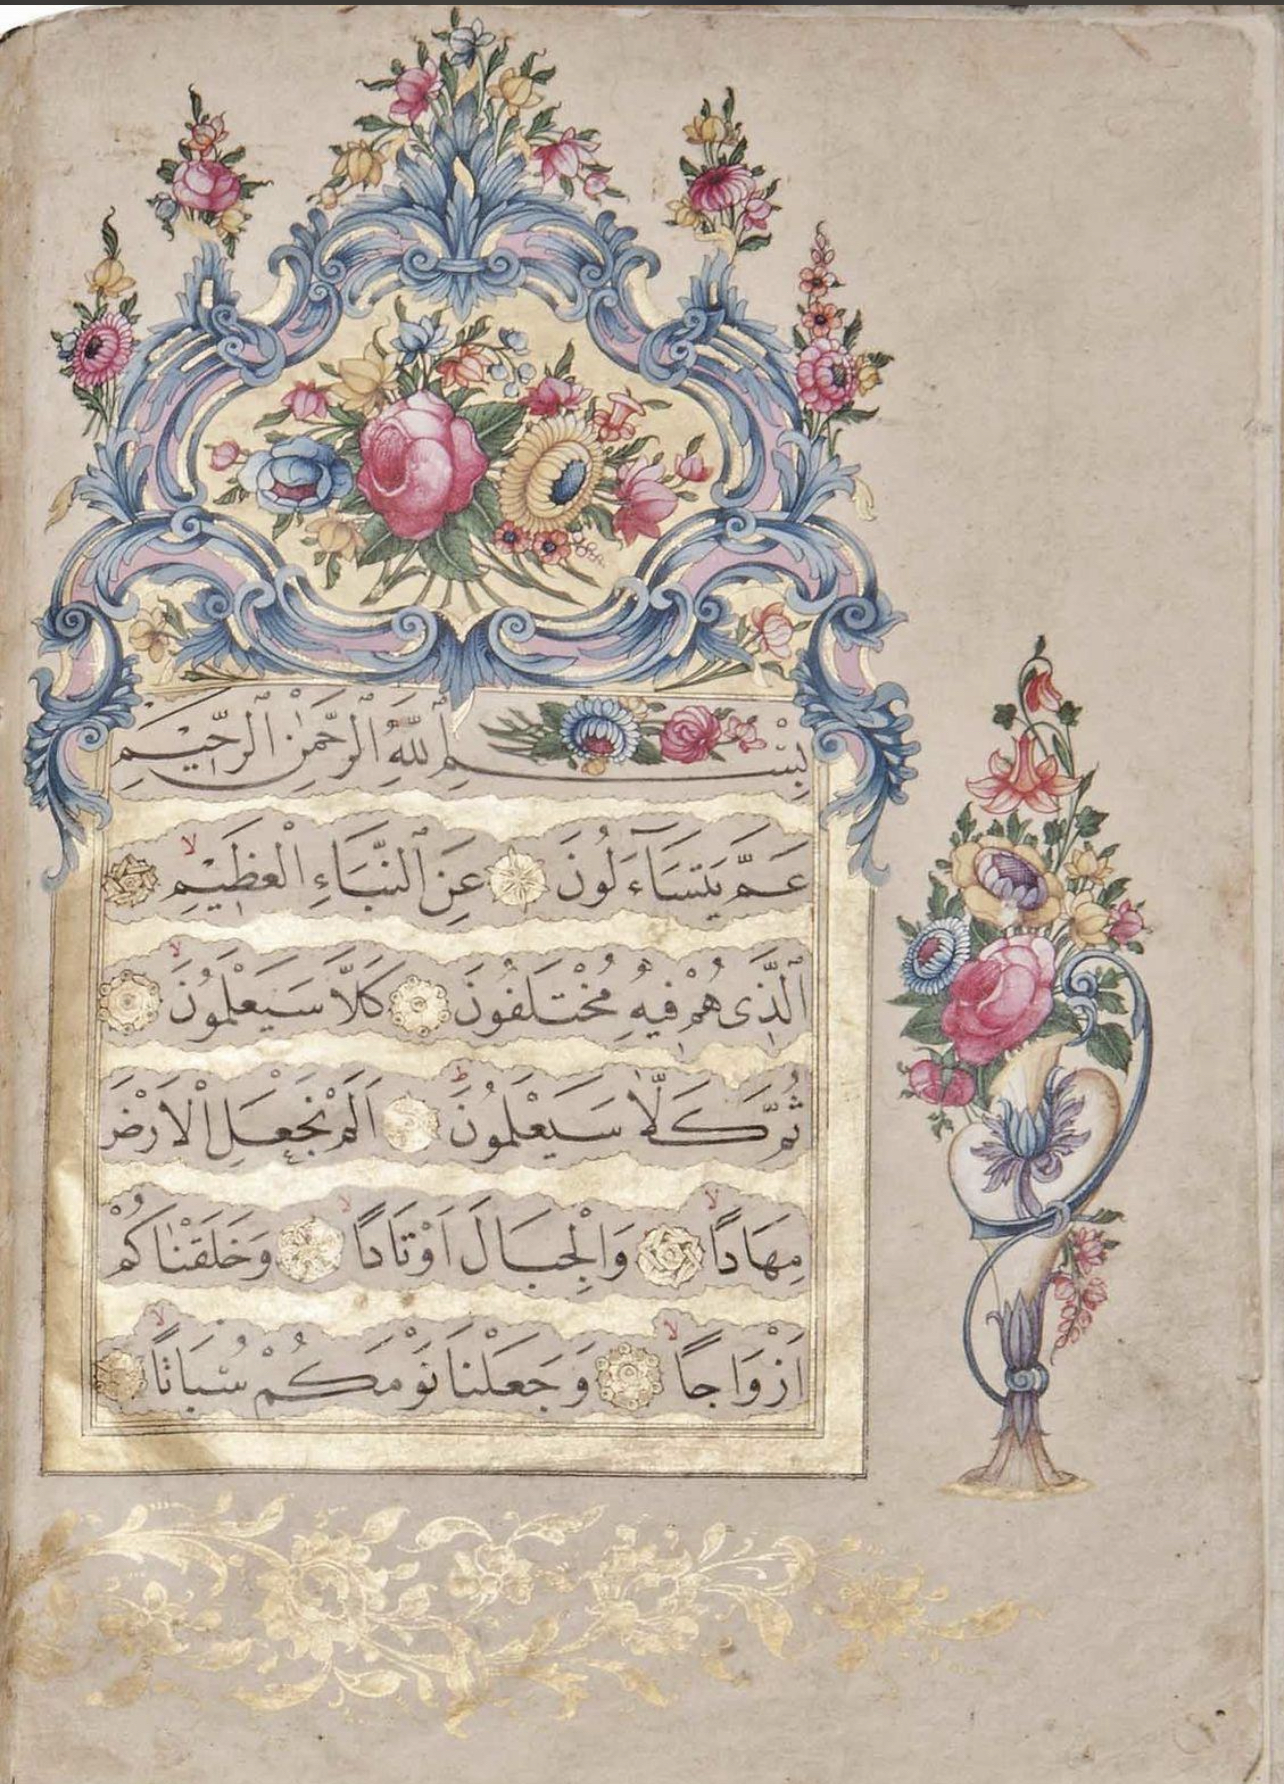 بِسْمِ ٱللّٰهِ ٱلرَّحْمٰنِ ٱلرَّحِيمِ
عَمَّ يَتَسَآءَلُونَ عَنِ ٱلنَّبَاءِ الْعَظِيمِ لا
ٱلَّذِى هُمْ فِيهِ مُخْتَلِفُونَ كَلَّا سَيَعْلَمُونَ لا
ثُمَّ كَلَّا سَيَعْلَمُونَ ط اَلَمْ نَجْعَلِ الْاَرْضَ
مِهَادًا لا وَالْجِبَالَ اَوْتَادًا لا وَخَلَقْنَاكُمْ
اَزْوَاجًا لا وَجَعَلْنَا نَوْمَكُمْ سُبَاتًا لا